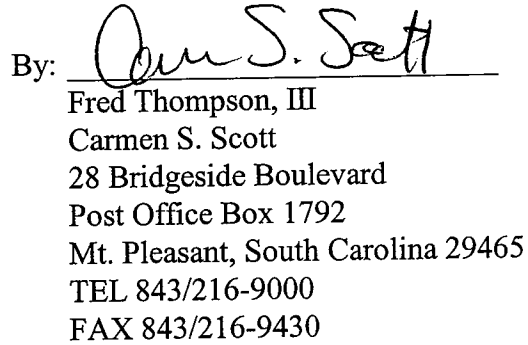 By: Carmen S. Scott
Fred Thompson, III
Carmen S. Scott
28 Bridgeside Boulevard
Post Office Box 1792
Mt. Pleasant, South Carolina 29465
TEL 843/216-9000
FAX 843/216-9430